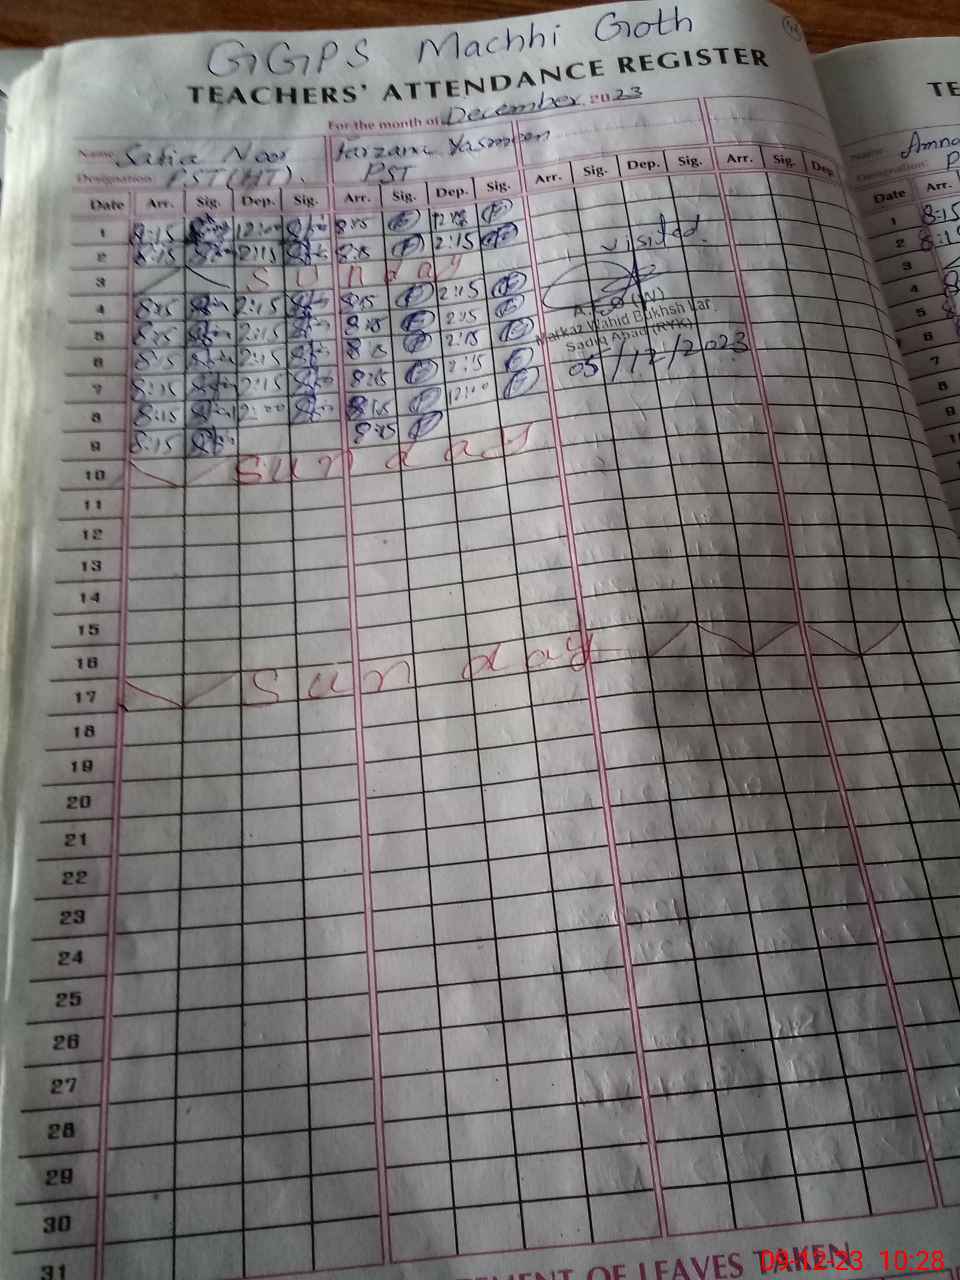 GGPS Machhi Goth
TEACHERS' ATTENDANCE REGISTER
For the month of December 2023
Name Safia Noor Farzana Yasmeen
Designation PST(HT). PST
Date Arr. Sig. Dep. Sig. Arr. Sig. Dep. Sig. Arr. Sig. Dep. Sig. Arr. Sig. Dep.
1 8:15 12:00 8:15
2 8:15 2:15 8:15 2:15
visited.
3 Sunday
4 8:15 2:15 8:15 2:15
5 8:15 2:15 8:15 2:15
Markaz Wahid Bukhsh Lar
Sadiq Abad (RYK)
05/12/2023
6 8:15 2:15 8:15 2:15
7 8:15 2:15 8:15 2:15
8 8:15 12:00 8:15 12:00
9 8:15 8:15
10 Sunday
11
12
13
14
15
16
17 Sunday
18
19
20
21
22
23
24
25
26
27
28
29
30
31
OF LEAVES TAKEN
TE
Name Amna
Designation P
Date Arr.
1 8:15
2
3
4
5
6
7
8
9
09-12-23 10:28